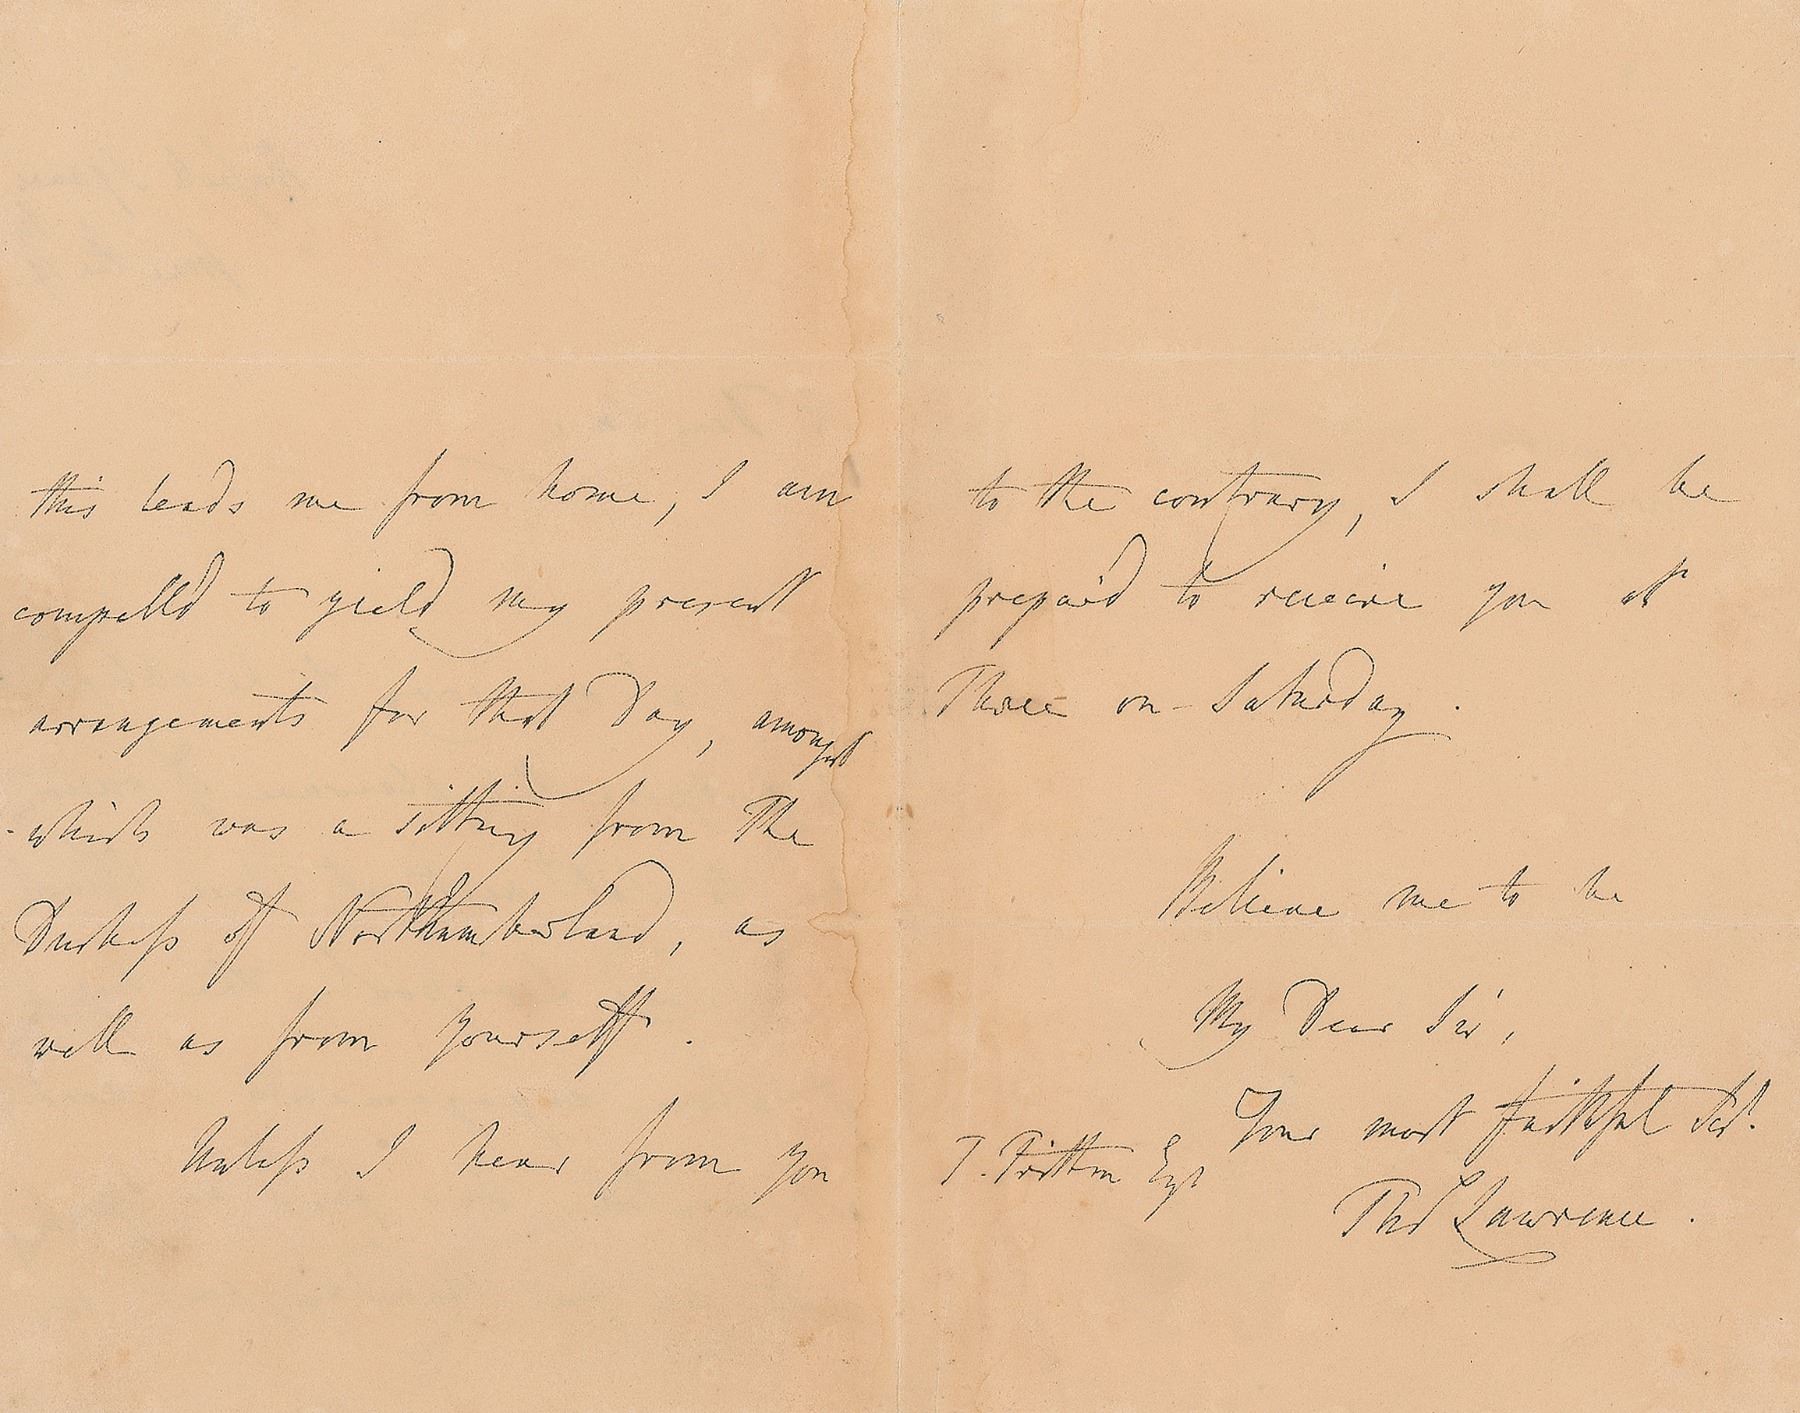 this leads me from home, I am
compell'd to yield my present
arrangements for that Day, amongst
which was a sitting from The
Duchess of Northumberland, as
well as from yourself.
Unless I hear from you
to the contrary, I shall be
prepar'd to receive you at
Three on Saturday.
Believe me to be
My Dear Sir,
Your most faithful Ser.t
T. Tritton Esq.r
Tho.s Lawrence.